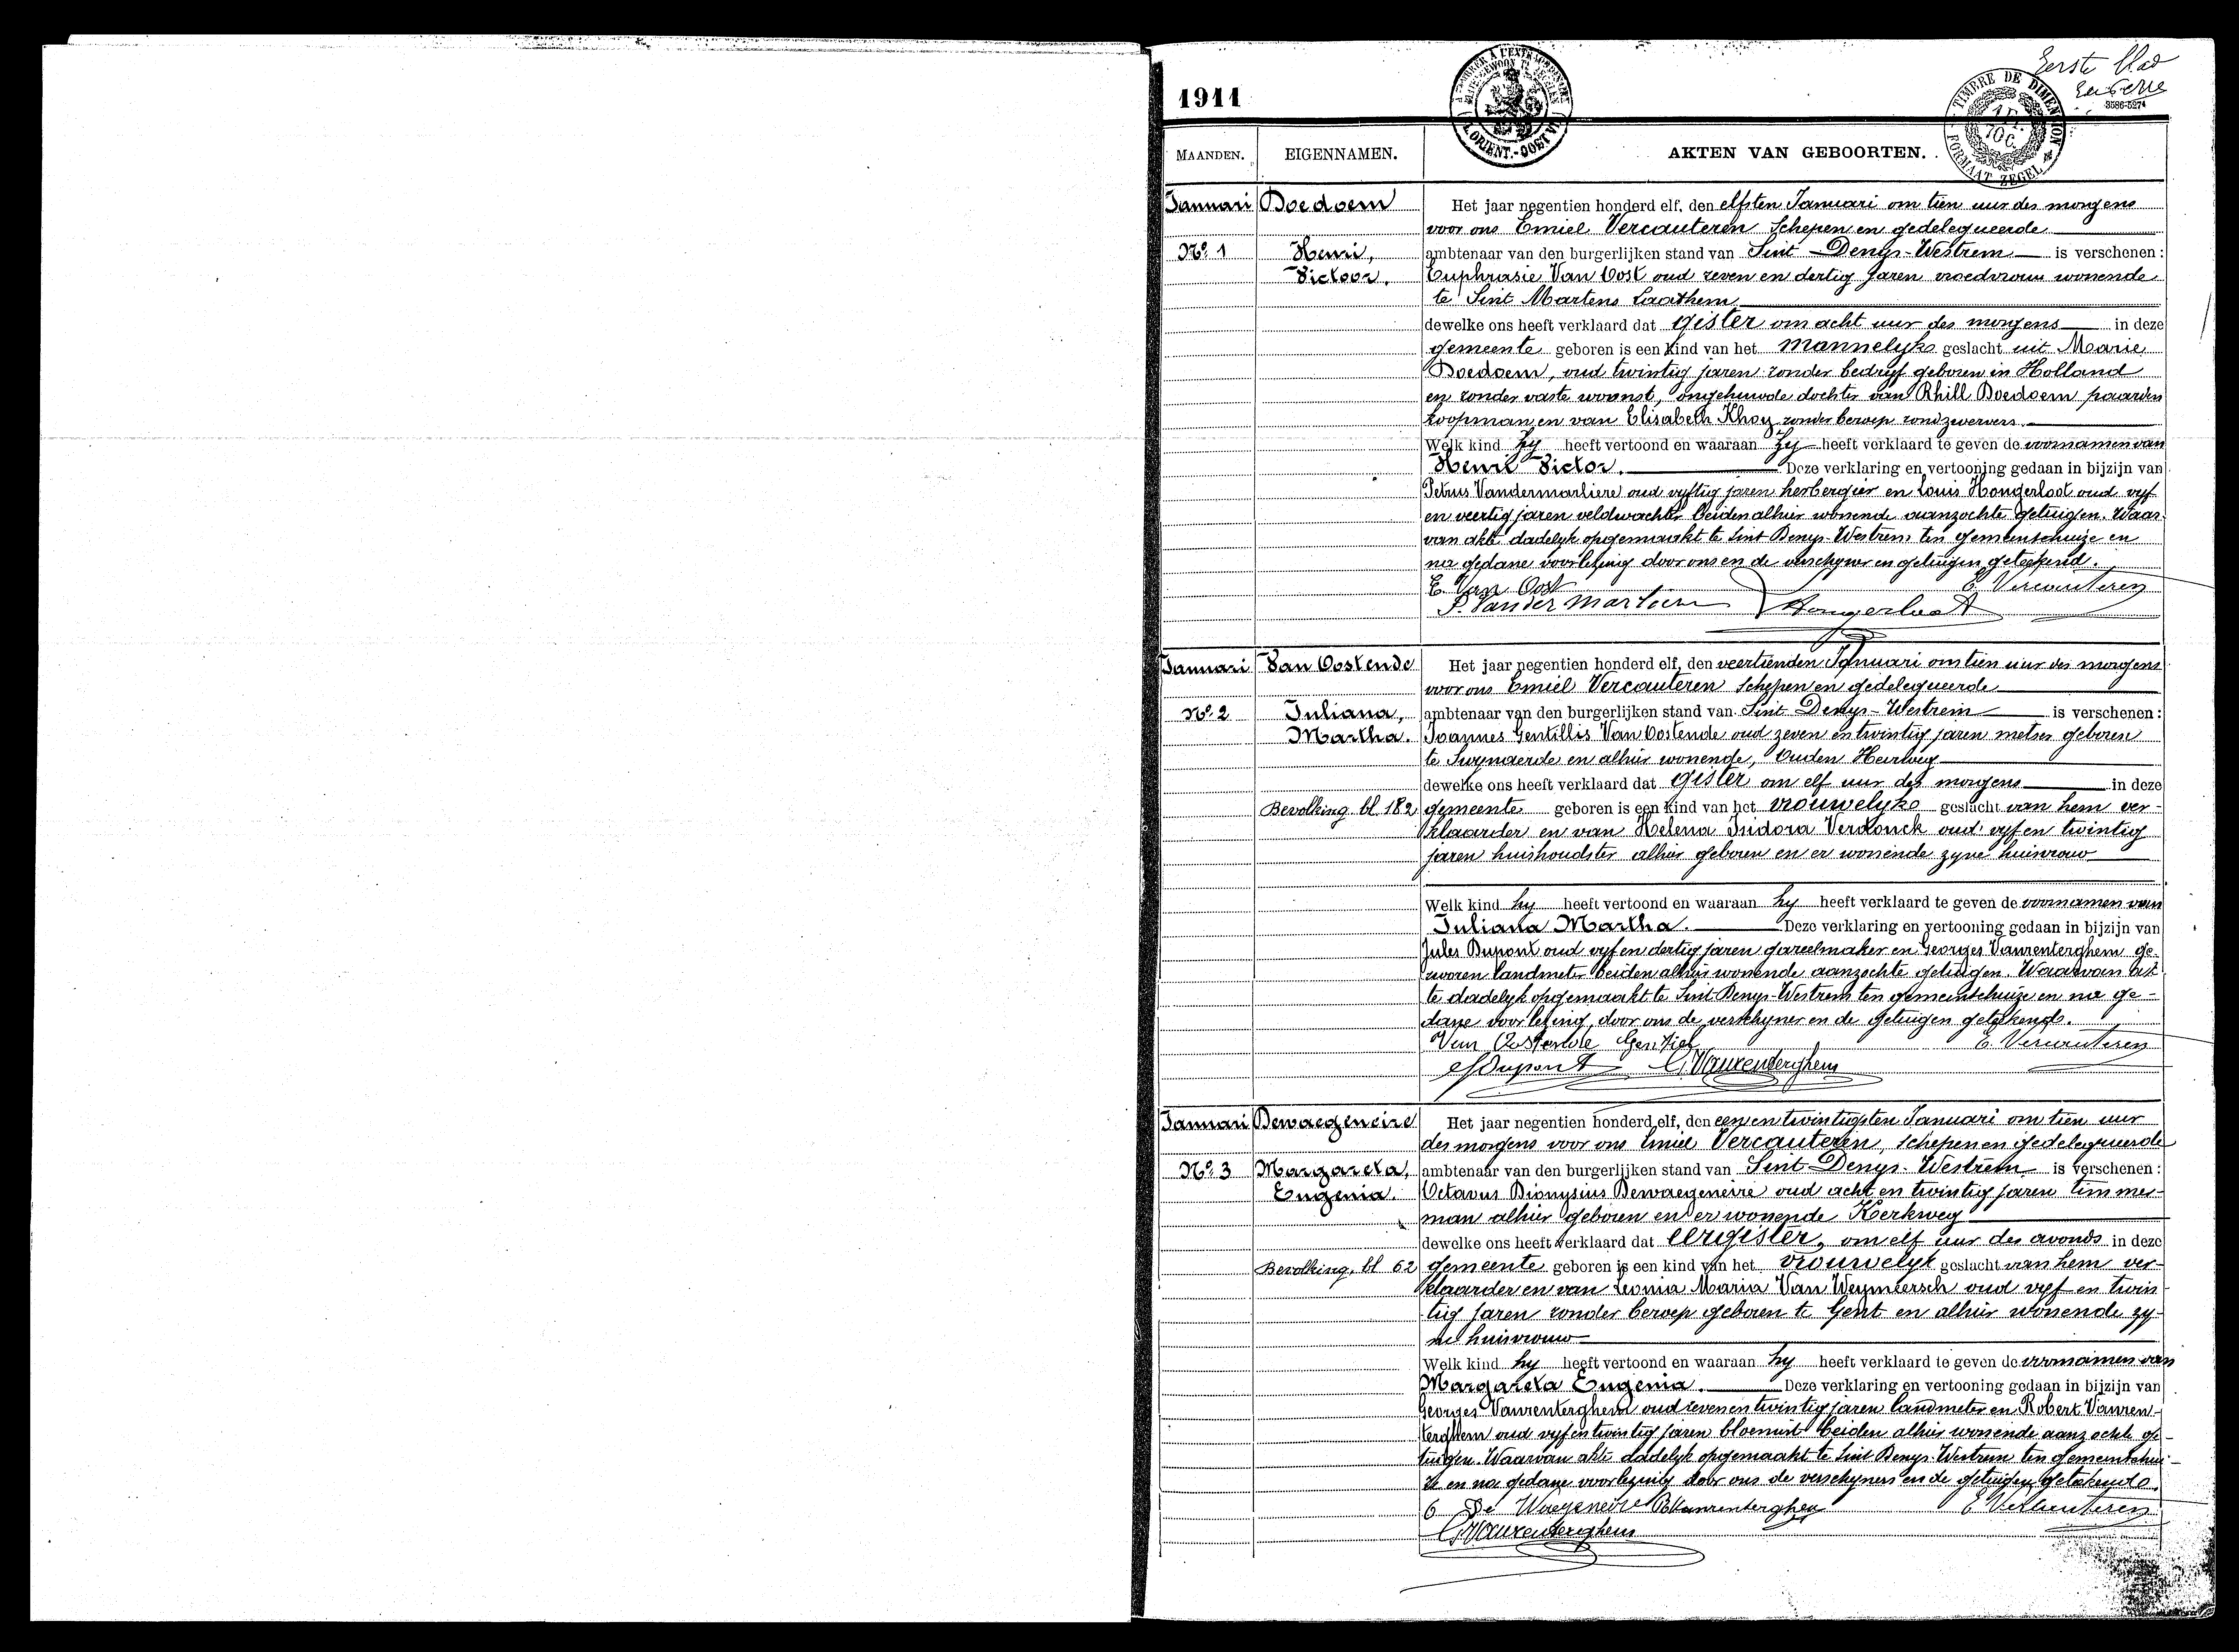 1911
Eerste blad
3586-5274
TIMBRE DE DIMENSION
FORMAAT ZEGEL
MAANDEN. EIGENNAMEN. AKTEN VAN GEBOORTEN.
Januari Boedoem Het jaar negentien honderd elf, den elfsten Januari om tien uur des morgens
voor ons Emiel Vercauteren Schepen en gedelegueerde
No. 1 Henri, ambtenaar van den burgerlijken stand van Sint-Denys-Westrem is verschenen:
Victoor. Euphrasie Van Oost oud zeven en dertig jaren vroedvrouw wonende
te Sint Martens Laathem
dewelke ons heeft verklaard dat gister om acht uur des morgens in deze
gemeente geboren is een kind van het mannelyks geslacht uit Marie
Boedoem, oud twintig jaren zonder bedryf geboren in Holland
en zonder vaste woonst, ongehuwde dochter van Rhill Boedoem paarden
koopman en van Elisabeth Khoy zonder beroep rondzwervers.
Welk kind hy heeft vertoond en waaraan zy heeft verklaard te geven de voornamen van
Henri Victor. Deze verklaring en vertooning gedaan in bijzijn van
Petrus Vandermarliere oud vyftig jaren herbergier en Louis Hongerloot oud vyf
en veertig jaren veldwachter beiden alhier wonende aanzochte getuigen. Waar
van akte dadelyk opgemaakt te Sint Denys-Westrem ten gemeentehuize en
na gedane voorlezing door ons en de verschyner en getuigen geteekend.
E. Van Oost E. Vercauteren
P. Vandermarliere Hongerloot
Januari Van Oostende Het jaar negentien honderd elf, den veertienden Januari om tien uur des morgens
voor ons Emiel Vercauteren Schepen en gedelegueerde
No. 2 Juliana, ambtenaar van den burgerlijken stand van Sint-Denys-Westrem is verschenen:
Martha. Joannes Gentillis Van Oostende oud zeven en twintig jaren metser geboren
te Swynaerde en alhier wonende, Ouden Heirweg
dewelke ons heeft verklaard dat gister om elf uur des morgens in deze
Bevolking bl. 182 gemeente geboren is een kind van het vrouwelyks geslacht van hem ver-
klaarder en van Helena Isidora Verdonck oud vyf en twintig
jaren huishoudster alhier geboren en er wonende zyne huisvrouw
Welk kind hy heeft vertoond en waaraan hy heeft verklaard te geven de voornamen van
Juliana Martha. Deze verklaring en vertooning gedaan in bijzijn van
Jules Dupont oud vyf en dertig jaren gareelmaker en Georges Vanrenterghem ge-
zworen landmeter beiden alhier wonende aanzochte getuigen. Waarvan ak
te dadelyk opgemaakt te Sint-Denys-Westrem ten gemeentehuize en na ge-
dane voorlezing, door ons de verschyner en de getuigen geteekend.
Van Oostende Gentiel E. Vercauteren
J Dupont G. Vanrenterghem
Januari Dewaegeneire Het jaar negentien honderd elf, den een en twintigsten Januari om tien uur
des morgens voor ons Emiel Vercauteren, schepen en gedelegueerde
No. 3 Margareta, ambtenaar van den burgerlijken stand van Sint-Denys-Westrem is verschenen:
Eugenia. Octavus Dionysius Dewaegeneire oud acht en twintig jaren timmer-
man alhier geboren en er wonende Kerkweg
dewelke ons heeft verklaard dat eergister, om elf uur des avonds in deze
Bevolking, bl 62 gemeente geboren is een kind van het vrouwelyk geslacht van hem ver-
klaarder en van Leonia Maria Van Weymeersch oud vyf en twin
tig jaren zonder beroep geboren te Gent en alhier wonende zy-
ne huisvrouw
Welk kind hy heeft vertoond en waaraan hy heeft verklaard te geven de voornamen van
Margareta Eugenia. Deze verklaring en vertooning gedaan in bijzijn van
Georges Vanrenterghem oud zeven en twintig jaren landmeter en Robert Vanren-
terghem oud vyf en twintig jaren bloemist beiden alhier wonende aanzochte ge-
tuigen. Waarvan akte dadelyk opgemaakt te Sint Denys-Westrem ten gemeentehui-
ze en na gedane voorlezing door ons de verschyners en de getuigen geteekend.
O De Waegeneire R Vanrenterghem E. Vercauteren
G. Vanrenterghem